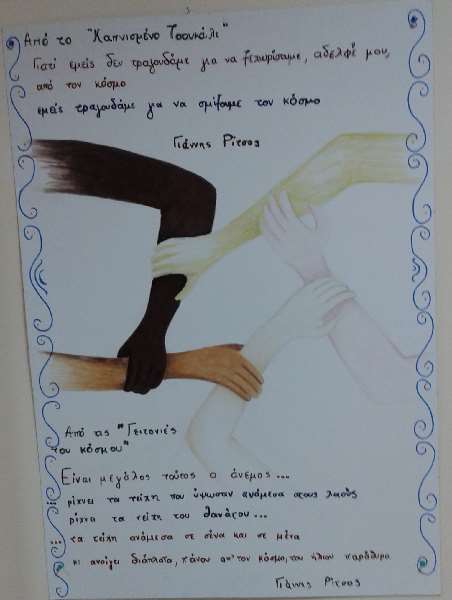 Από το "Καπνισμένο Τσουκάλι"
Γιατί εμείς δεν τραγουδάμε για να ξεχωρίσουμε, αδελφέ μου,
από τον κόσμο
εμείς τραγουδάμε για να σμίξουμε τον κόσμο
Γιάννης Ρίτσος
Από τις "Γειτονιές
του κόσμου"
Είναι μεγάλος τούτος ο άνεμος...
ρίχνει τα τείχη που ύψωσαν ανάμεσα στους λαούς
ρίχνει τα τείχη του θανάτου...
... τα τείχη ανάμεσα σε σένα και σε μένα
κι ανοίγει διάπλατα, πάνου απ' τον κόσμο, του ήλιου παράθυρο
Γιάννης Ρίτσος